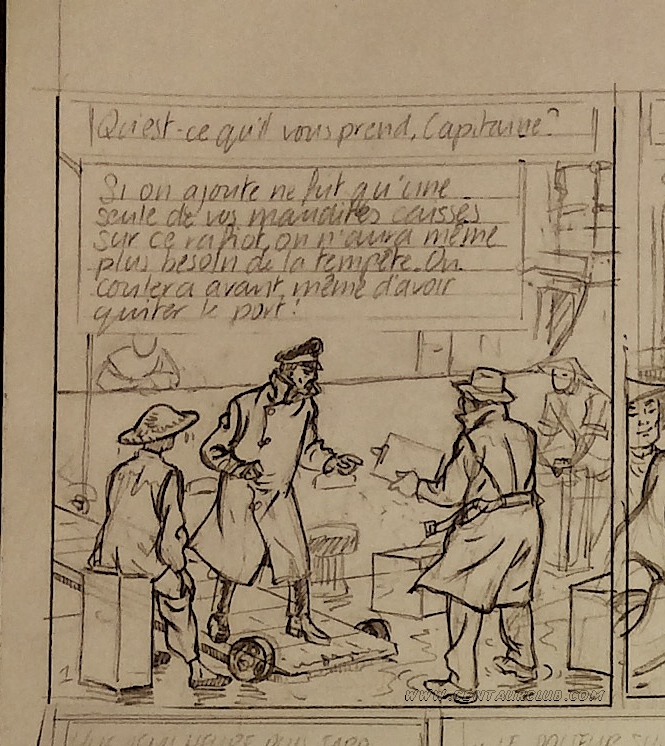 Qu'est-ce qu'il vous prend, Capitaine?
Si on ajoute ne fut qu'une
seule de vos maudites caisses
sur ce rafiot, on n'aura même
plus besoin de la tempête. On
coulera avant même d'avoir
quitter le port!
1
WWW.CENTAURCLUB.COM
DEMI HEURE PLUS TARD
LE DOCTEUR